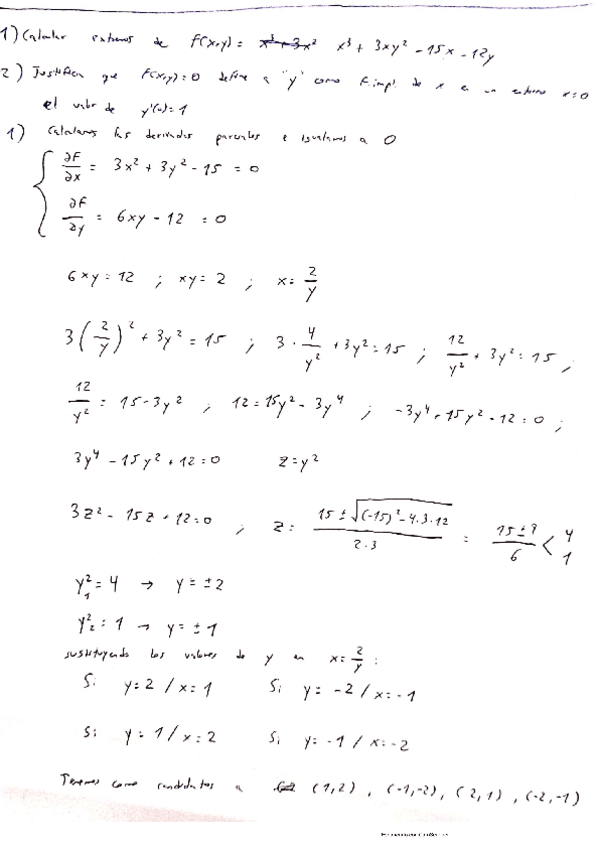 1) Calcular extremos de F(x,y) = x³ + 3xy² - 15x - 12y
2) Justifica que F(x,y)=0 define a "y" como F. impl. de x en un entorno x=0
el valor de y'(0)=1
1) Calculamos las derivadas parciales e igualamos a 0
∂F/∂x = 3x² + 3y² - 15 = 0
∂F/∂y = 6xy - 12 = 0
6xy = 12 ; xy = 2 ; x = 2/y
3(2/y)² + 3y² = 15 ; 3 · 4/y² + 3y² = 15 ; 12/y² + 3y² = 15 ;
12/y² = 15 - 3y² ; 12 = 15y² - 3y⁴ ; -3y⁴ + 15y² - 12 = 0 ;
3y⁴ - 15y² + 12 = 0 z = y²
3z² - 15z + 12 = 0 ; z = (15 ± √((-15)² - 4·3·12))/(2·3) = (15 ± 9)/6 < 4 1
y₁² = 4 → y = ±2
y₂² = 1 → y = ±1
sustituyendo los valores de y en x = 2/y :
Si y=2 / x=1 Si y=-2 / x=-1
Si y=1 / x=2 Si y=-1 / x=-2
Tenemos como candidatos a (1,2) , (-1,-2) , (2,1) , (-2,-1)